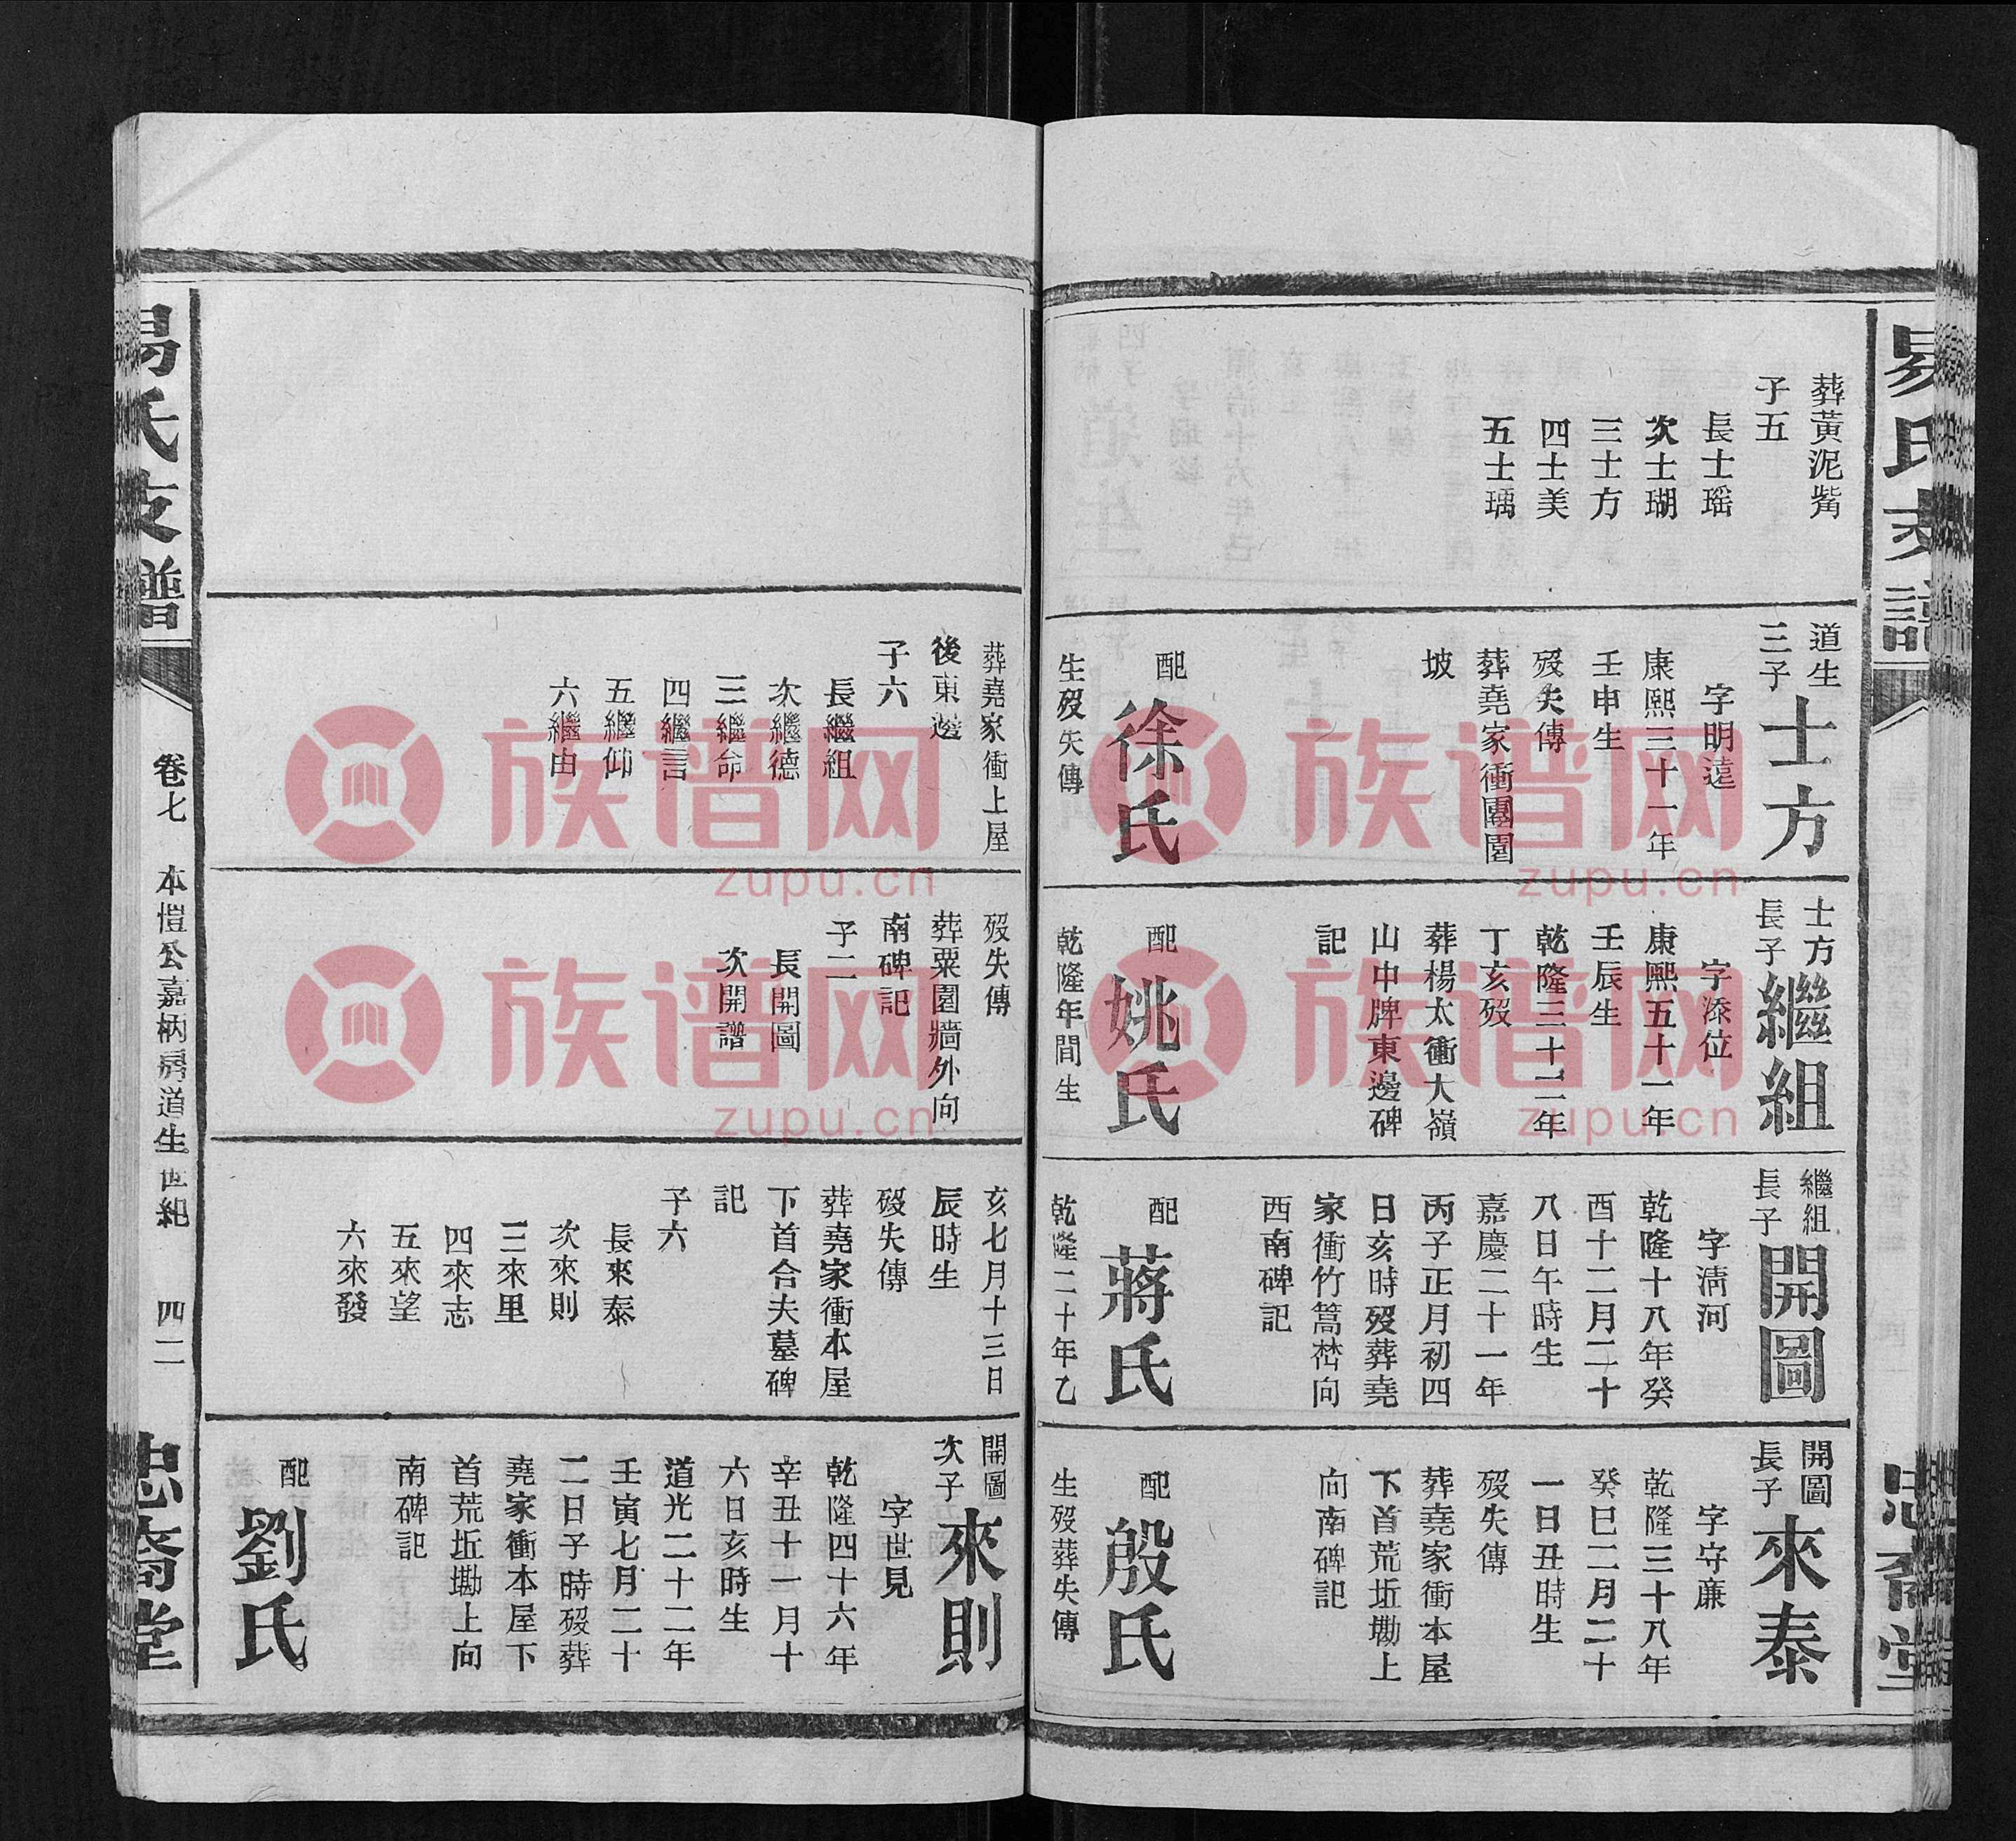 易氏支譜
忠裔堂
葬黃泥觜
子五
長士瑶
次士瑚
三士方
四士美
五士瑀
道生
三子
士方
字明遠
康熙三十一年
壬申生
歿失傳
葬堯家衝團園
坡
配
徐氏
生歿失傳
士方
長子
繼組
字添位
康熙五十一年
壬辰生
乾隆三十二年
丁亥歿
葬楊太衝大嶺
山中牌東邊碑
記
配
姚氏
乾隆年間生
繼組
長子
開圖
字淸河
乾隆十八年癸
酉十二月二十
八日午時生
嘉慶二十一年
丙子正月初四
日亥時歿葬堯
家衝竹篙嶅向
西南碑記
配
蔣氏
乾隆二十年乙
開圖
長子
來泰
字守廉
乾隆三十八年
癸巳二月二十
一日丑時生
歿失傳
葬堯家衝本屋
下首荒坵墈上
向南碑記
配
殷氏
生歿葬失傳
葬堯家衝上屋
後東邊
子六
長繼組
次繼德
三繼命
四繼言
五繼仰
六繼由
歿失傳
葬粟園牆外向
南碑記
子二
長開圖
次開譜
亥七月十三日
辰時生
歿失傳
葬堯家衝本屋
下首合夫墓碑
記
子六
長來泰
次來則
三來里
四來志
五來望
六來發
開圖
次子
來則
字世見
乾隆四十六年
辛丑十一月十
六日亥時生
道光二十二年
壬寅七月二十
二日子時歿葬
堯家衝本屋下
首荒坵墈上向
南碑記
配
劉氏
易氏支譜
卷七
本愷公嘉柄房道生世紀
四二
忠裔堂
族谱网
zupu.cn
族谱网
zupu.cn
族谱网
zupu.cn
族谱网
zupu.cn